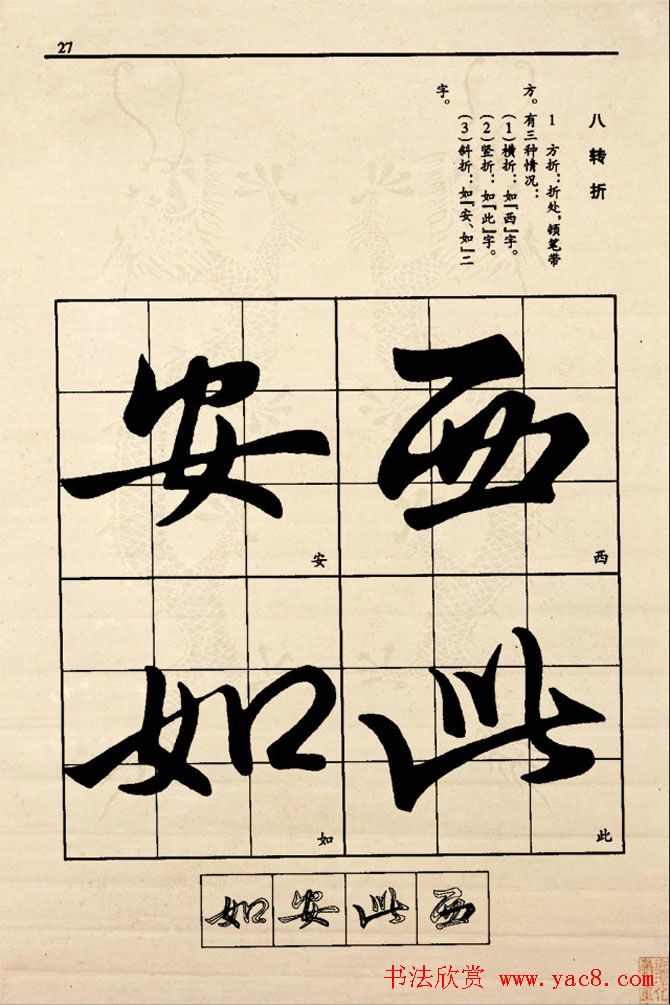 27
八 转 折
1 方折：折处，顿笔带
方。有三种情况：
(1)横折：如『西』字。
(2)竖折：如『此』字。
(3)斜折：如『安、如』二
字。
西
西
此
此
安
安
如
如
如安此西
书法欣赏 www.yac8.com